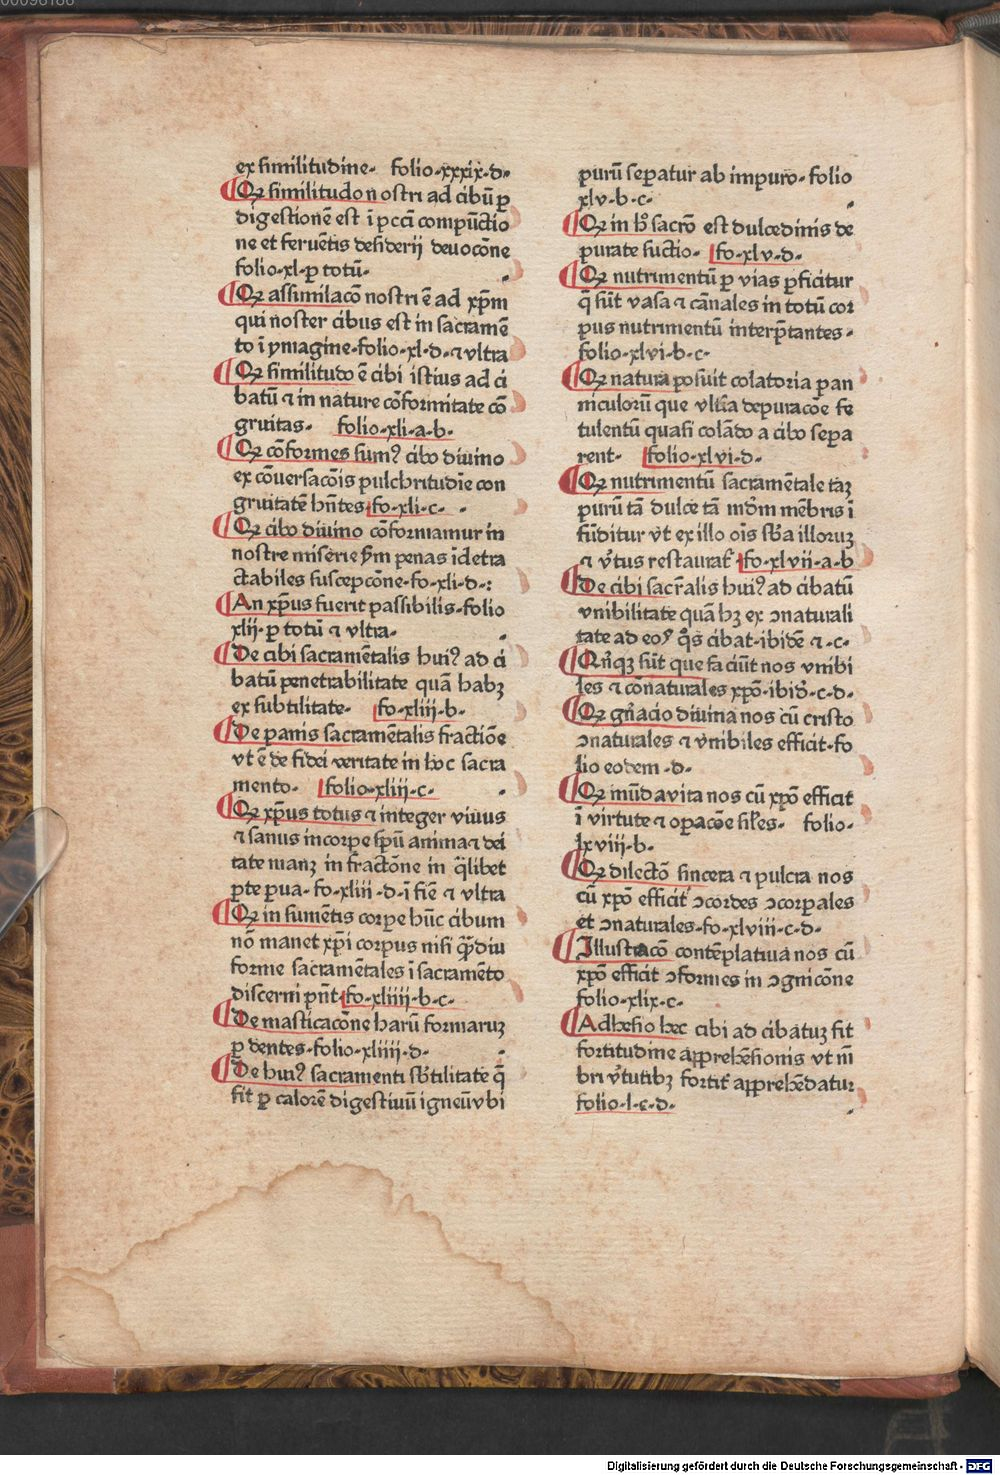 00096186
ex similitudine· folio·xxxix·d·
¶Qꝫ similitudo nostri ad cibū ꝑ
digestionē est ī pccā compūctio
ne et feruētis desiderij deuocōne
folio·xl·ꝑ totū·
¶Qꝫ assimilacō nostri ē ad xp̄m
qui noster cibus est in sacramē
to ī ymagine·folio·xl·d·⁊ vltra
¶Qꝫ similitudo ē cibi istius ad ci
batū ⁊ in nature cōformitate cō
gruitas· folio·xli·a·b·
¶Qꝫ cōformes sumꝰ cibo diuino
ex cōuersacōis pulchritudīe con
gruitatē hn̄tes·fo·xli·c·
¶Qꝫ cibo diuino cōformamur in
nostre miserie ẜm penas īdetra
ctabiles suscepcōne·fo·xli·d·:
¶An xp̄us fuerit passibilis·folio
xlij·ꝑ totū ⁊ vltra·
¶De cibi sacramētalis huiꝰ ad ci
batū penetrabilitate quā habꝫ
ex subtilitate· fo·xliij·b·
¶De panis sacramētalis fractiōe
vt ē de fidei veritate in hoc sacra
mento· folio·xliij·c·
¶Qꝫ xp̄us totus ⁊ integer viuus
⁊ sanus in corpe sp̄u anima ⁊ dei
tate manꝫ in fractōne in q̄libet
ꝑte ꝑua·fo·xliij·d·ī fiē ⁊ vltra
¶Qꝫ in sumētis corpe hūc cibum
nō manet xp̄i corpus nisi qm̄diu
forme sacramētales ī sacramēto
discerni pn̄t·fo·xliiij·b·c·
¶De masticacōne harū formaruꝫ
ꝑ dentes·folio·xliiij·d·
¶De huiꝰ sacramenti sb̄tilitate q̄
fit ꝑ calorē digestiuū igneū vbi
purū sepatur ab impuro·folio
xlv·b·c·
¶Qꝫ in h̄ sacrō est dulcedinis de
purate suctio· fo·xlv·d·
¶Qꝫ nutrimentū ꝑ vias ꝑficitur
q̄ sūt vasa ⁊ cānales in totū cor
pus nutrimentū interp̄tantes·
folio·xlvi·b·c·
¶Qꝫ natura posuit colatoria pan
niculorū que vlt̄ia depuracōe fe
tulentū quasi colādo a cibo sepa
rent· folio·xlvi·d·
¶Qꝫ nutrimentū sacramētale tāꝫ
purū tā dulce tā mdm̄ mēbris ī
fūditur vt ex illo oīs sb̄a illoruꝫ
⁊ v̄tus restaurat̄·fo·xlvii·a·b
¶De cibi sacr̄alis huiꝰ ad cibatū
vnibilitate quā hꝫ ex ↄnaturali
tate ad eos q̄s cibat·ibidē ⁊·c·
¶Qn̄qꝫ sūt que faciūt nos vnibi
les ⁊ cōnaturales xpō·ibiđ·c·d·
¶Qꝫ gn̄acio diuina nos cū cristo
ↄnaturales ⁊ vnibiles efficit·fo
lio eodem·d·
¶Qꝫ mūda vita nos cū xpō efficit
ī virtute ⁊ opacōe sil̄es· folio·
lxviii·b·
¶Qꝫ dilectō sincera ⁊ pulcra nos
cū xpō efficit ↄcordes ↄcorpales
et ↄnaturales·fo·xlviii·c·d·
¶Illustracō contēplatiua nos cū
xpō efficit ↄformes in ↄgnicōne
folio·xlix·c·
¶Adhesio hec cibi ad cibatuꝫ fit
fortitudine apprehēsionis vt nī
bri v̄tutibꝫ fortit̄ apprehēdatur
folio·l·c·d·
Digitalisierung gefördert durch die Deutsche Forschungsgemeinschaft - DFG